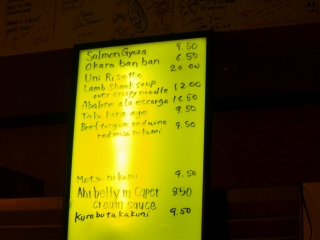 Salmon Gyoza 9.50
Okara ban ban 6.50
Uni Risotto 20.00
Lamb Shank soup
over crispy noodle 12.00
Abalone a la escargo 18.50
Tako kara age 9.50
Beef tongue red wine
red miso nikomi 9.50
Motsu nikomi 9.50
Ahi belly in Caper 850
cream sauce
Kurobuta kakuni 9.50